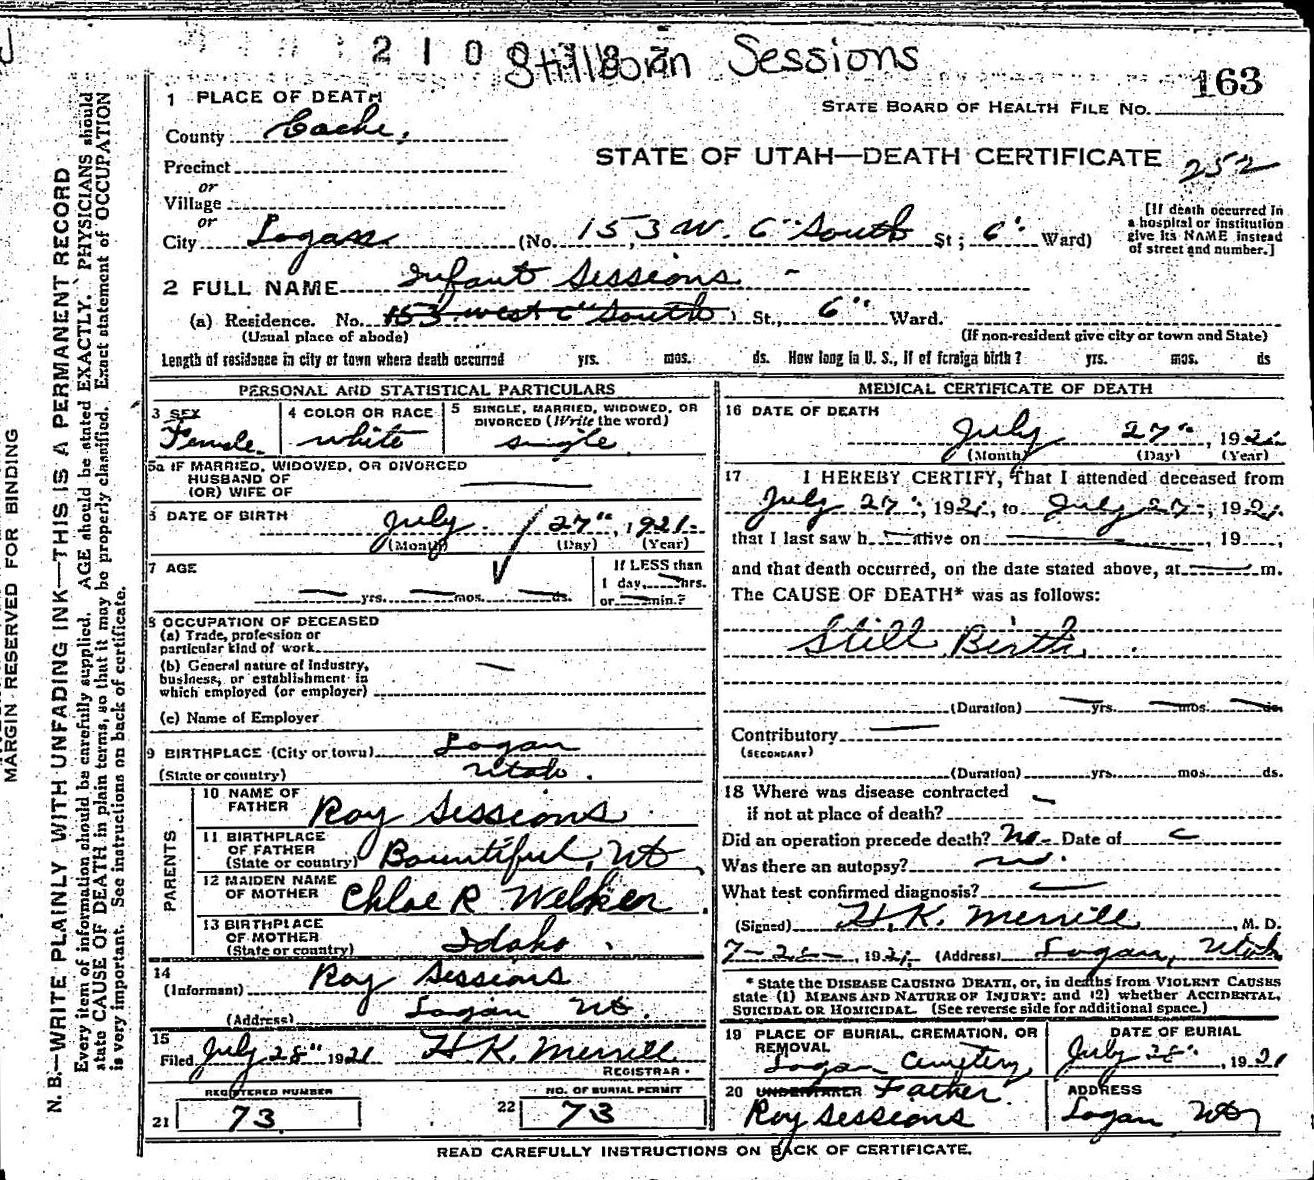 Stillborn Sessions
163
STATE BOARD OF HEALTH FILE NO.
1 PLACE OF DEATH
County Cache,
STATE OF UTAH—DEATH CERTIFICATE
252
Precinct
or
Village
or
City Logan (No. 153 W. 6" South St; 6" Ward)
[If death occurred in a hospital or institution give its NAME instead of street and number.]
2 FULL NAME Infant Sessions -
(a) Residence. No. 153 west 6" South St., 6" Ward.
(Usual place of abode) (If non-resident give city or town and State)
Length of residence in city or town where death occurred yrs. mos. ds. How long in U. S., if of foreign birth? yrs. mos. ds
PERSONAL AND STATISTICAL PARTICULARS
3 SEX
Female.
4 COLOR OR RACE
white
5 SINGLE, MARRIED, WIDOWED, OR DIVORCED (Write the word)
single
5a IF MARRIED, WIDOWED, OR DIVORCED
HUSBAND OF
(OR) WIFE OF
6 DATE OF BIRTH July 27", 1921.
(Month) (Day) (Year)
7 AGE
yrs. mos. ds.
If LESS than
1 day, hrs.
or min.?
8 OCCUPATION OF DECEASED
(a) Trade, profession or
particular kind of work
(b) General nature of industry,
business, or establishment in
which employed (or employer)
(c) Name of Employer
9 BIRTHPLACE (City or town) Logan
(State or country) Utah.
PARENTS
10 NAME OF FATHER Roy Sessions
11 BIRTHPLACE OF FATHER (State or country) Bountiful, Ut
12 MAIDEN NAME OF MOTHER Chloe R Welker
13 BIRTHPLACE OF MOTHER (State or country) Idaho.
14 (Informant) Roy Sessions
(Address) Logan Ut.
15 Filed July 28" 1921 H K. Merrill
REGISTRAR.
REGISTERED NUMBER
21 73
NO. OF BURIAL PERMIT
22 73
MEDICAL CERTIFICATE OF DEATH
16 DATE OF DEATH
July 27", 1921
(Month) (Day) (Year)
17 I HEREBY CERTIFY, That I attended deceased from
July 27", 1921, to July 27, 1921.
that I last saw h alive on , 19 ,
and that death occurred, on the date stated above, at m.
The CAUSE OF DEATH* was as follows:
Still Birth
(Duration) yrs. mos. ds.
Contributory
(SECONDARY)
(Duration) yrs. mos. ds.
18 Where was disease contracted
if not at place of death?
Did an operation precede death? No- Date of
Was there an autopsy? no.
What test confirmed diagnosis?
(Signed) H. K. Merrill, M. D.
7-28-, 1921. (Address) Logan, Utah
* State the DISEASE CAUSING DEATH, or, in deaths from VIOLENT CAUSES
state (1) MEANS AND NATURE OF INJURY; and (2) whether ACCIDENTAL,
SUICIDAL OR HOMICIDAL. (See reverse side for additional space.)
19 PLACE OF BURIAL, CREMATION, OR REMOVAL
Logan Cemetery
DATE OF BURIAL
July 28", 1921
20 UNDERTAKER Father.
Roy Sessions
ADDRESS
Logan, Ut
READ CAREFULLY INSTRUCTIONS ON BACK OF CERTIFICATE.
MARGIN RESERVED FOR BINDING
N. B.—WRITE PLAINLY WITH UNFADING INK—THIS IS A PERMANENT RECORD
Every item of information should be carefully supplied. AGE should be stated EXACTLY. PHYSICIANS should
state CAUSE OF DEATH in plain terms, so that it may be properly classified. Exact statement of OCCUPATION
is very important. See instructions on back of certificate.